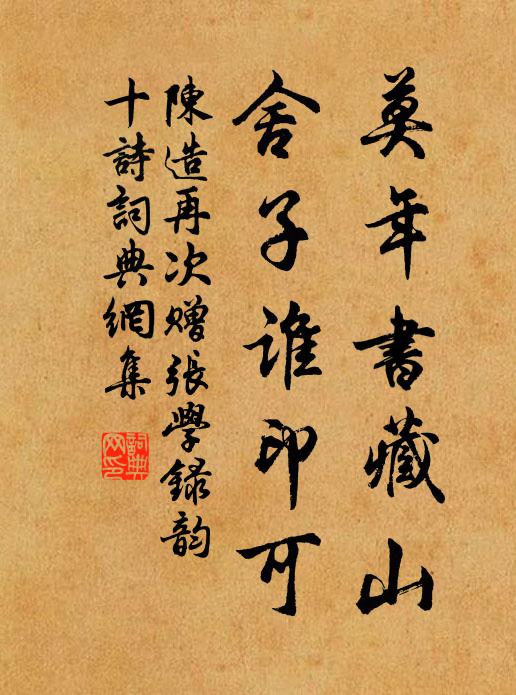 莫年書藏山
舍子誰印可
陳造再次贈張學録韵
十詩詞典網集
詞典網印